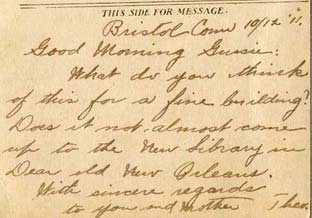 THIS SIDE FOR MESSAGE.
Bristol Conn 10/12 '11.
Good Morning Gussie:
What do you think
of this for a fine building?
Does it not almost come
up to the New Library in
Dear old New Orleans.
With sincere regards
to you and Mother Theo.